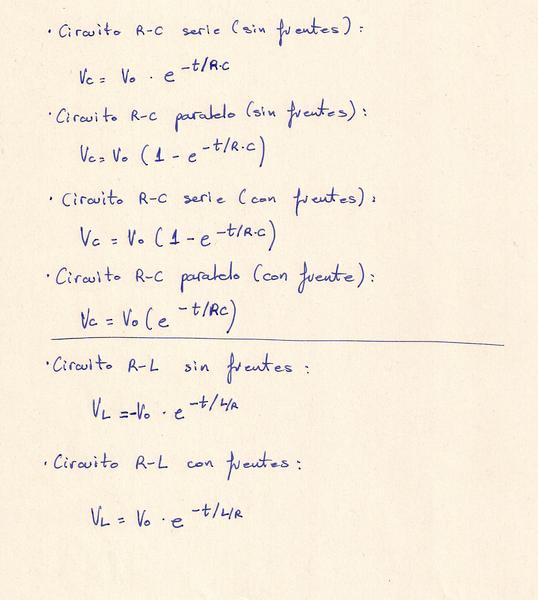 · Circuito R-C serie (sin fuentes):
Vc = Vo · e^-t/R·C
· Circuito R-C paralelo (sin fuentes):
Vc = Vo (1 - e^-t/R·C)
· Circuito R-C serie (con fuentes):
Vc = Vo (1 - e^-t/R·C)
· Circuito R-C paralelo (con fuente):
Vc = Vo (e^-t/RC)
· Circuito R-L sin fuentes:
VL = -Vo · e^-t/L/R
· Circuito R-L con fuentes:
VL = Vo · e^-t/L/R